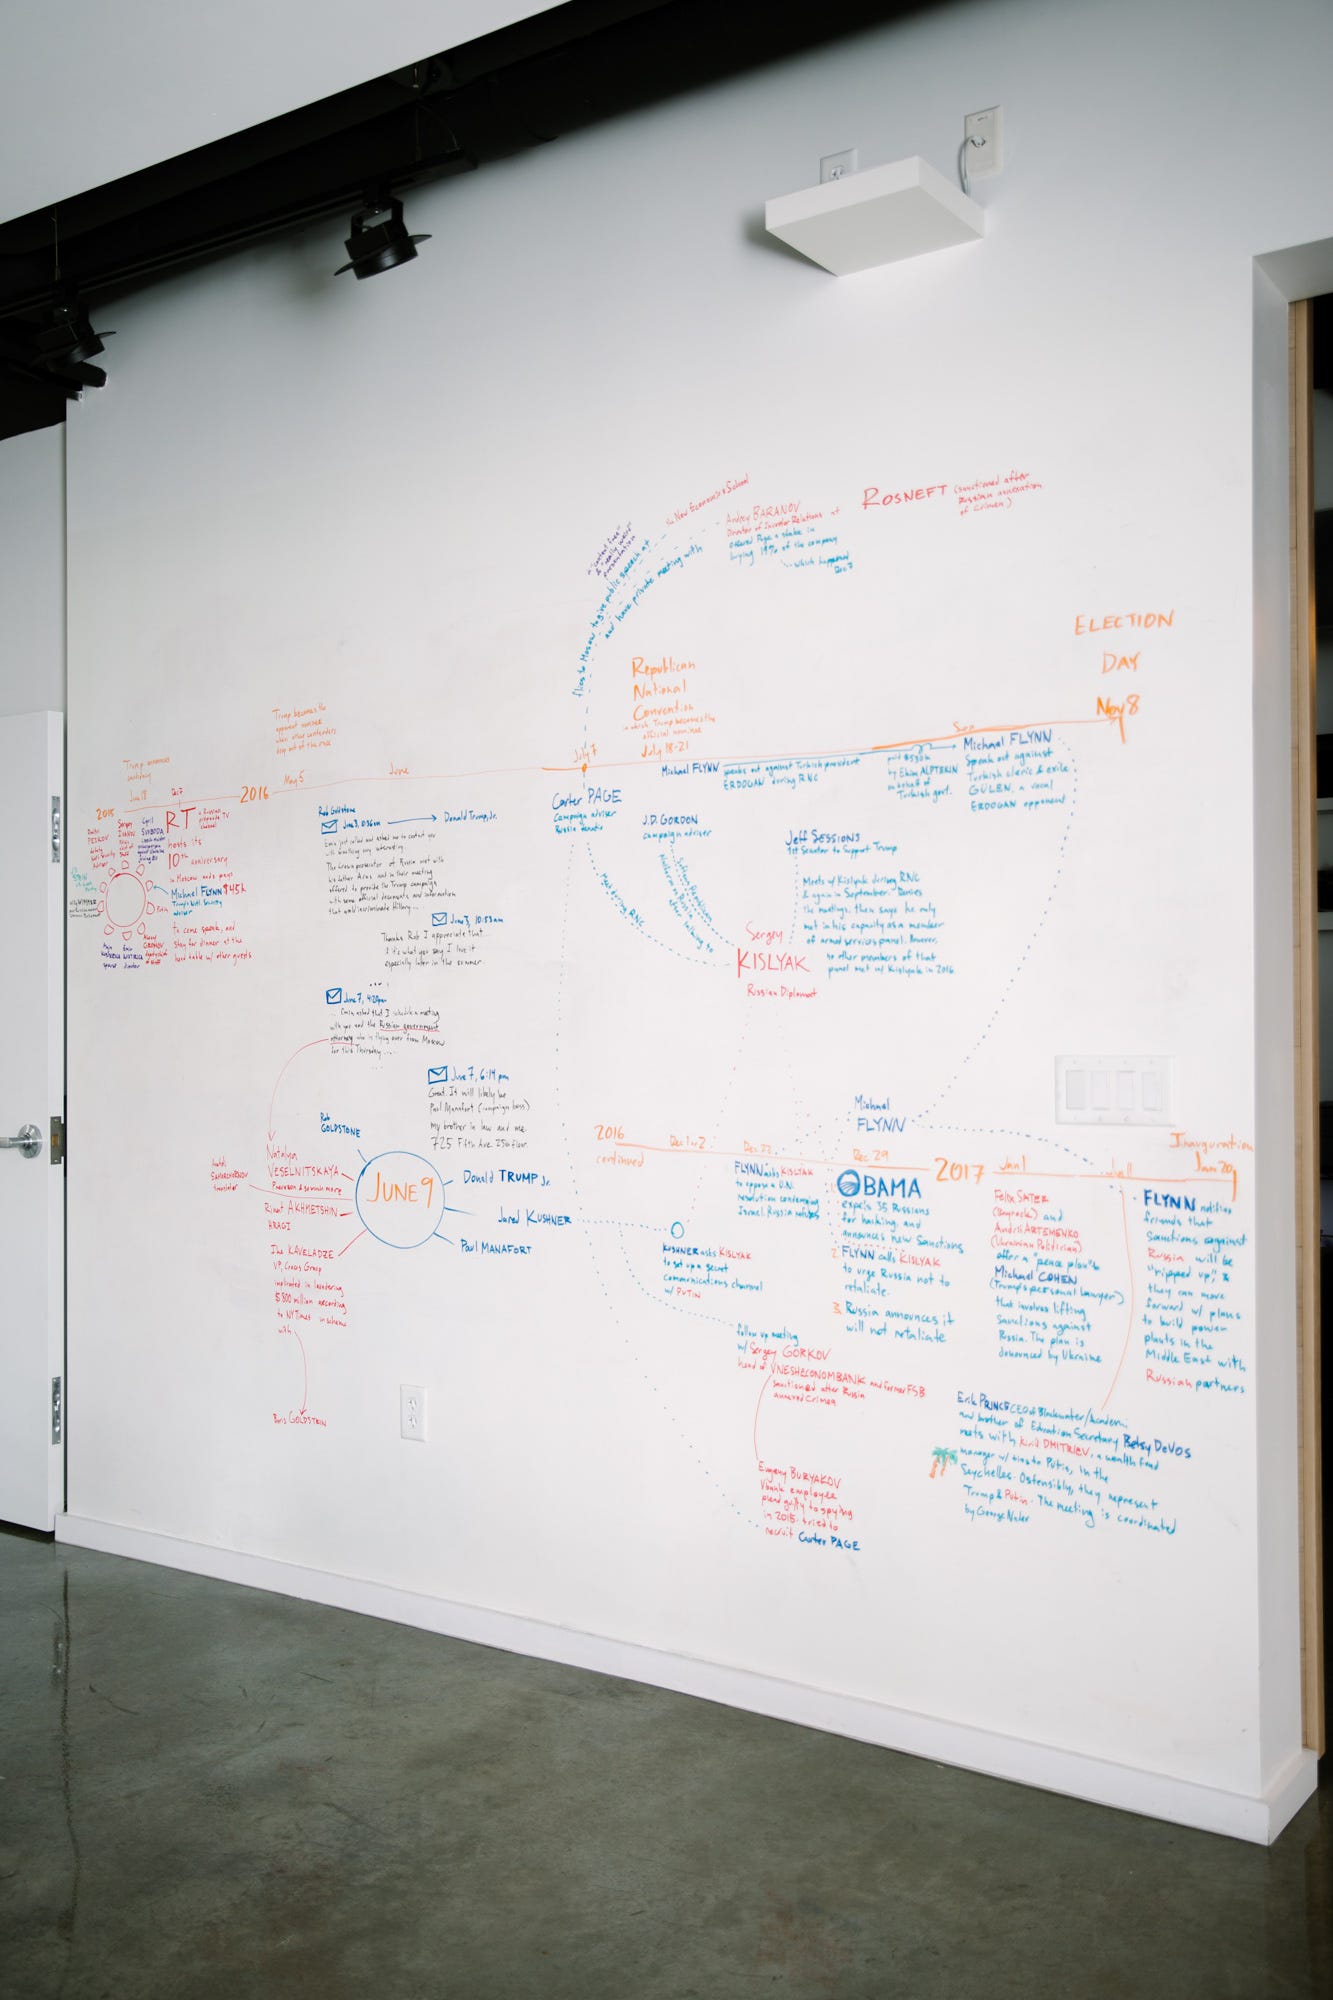 the New Economics School
"content free"
& "really weird"
presentation
flies to Moscow to give public speech at
and have private meeting with
Andrey BARANOV
Director of Investor Relations at
offered Page a stake in
buying 19% of the company
which happened
Dec 7
ROSNEFT (sanctioned after
Russian annexation
of Crimea)
ELECTION
DAY
Nov 8
Republican
National
Convention
in which Trump becomes the
official nominee
July 18-21
Trump becomes the
apparent nominee
when other contenders
drop out of the race
Trump announces
2015
June 18
Dec 7
2016
May 5
June
July 7
Sep
RT
a Russian
propaganda TV
channel
hosts its
10th anniversary
in Moscow and pays
Michael FLYNN $45k
Trump's Nat'l Security
adviser
to come speak, and
stay for dinner at the
head table w/ other guests
Dmitri
PESKOV
Sergey
IVANOV
Cyril
SVOBODA
Putin
Rob Goldstone
June 3, 10:36am
Donald Trump, Jr.
Emin just called and asked me to contact you
with something very interesting.
The Crown prosecutor of Russia met with
his father Aras and in their meeting
offered to provide the Trump campaign
with some official documents and information
that would incriminate Hillary...
June 3, 10:53am
Thanks Rob I appreciate that...
if it's what you say I love it
especially later in the summer.
...
June 7, 4:20pm
... Emin asked that I schedule a meeting
with you and the Russian government
attorney who is flying over from Moscow
for this Thursday....
...
June 7, 6:14pm
Great. It will likely be
Paul Manafort (campaign boss)
my brother in law and me.
725 Fifth Ave 25th floor.
Rob
GOLDSTONE
JUNE 9
Donald TRUMP Jr.
Jared KUSHNER
Paul MANAFORT
Natalya
VESELNITSKAYA
Anatoli
SAMACHORNOV
translator
Rinat AKHMETSHIN
Ike KAVELADZE
VP, Crocus Group
implicated in laundering
$800 million according
to NYTimes in scheme
with
Boris GOLDSTEIN
Carter PAGE
campaign adviser
Russia fanatic
Met during RNC
J.D. GORDON
campaign adviser
Softens Republican
platform on Russia
after talking to
Sergey
KISLYAK
Russian Diplomat
Michael FLYNN speaks out against Turkish president
ERDOGAN during RNC
paid $530k
by Ekim ALPTEKIN
on behalf of
Turkish govt.
Michael FLYNN
Speaks out against
Turkish cleric & exile
GÜLEN, a vocal
ERDOGAN opponent
Jeff SESSIONS
1st Senator to Support Trump
Meets w/ Kislyak during RNC
& again in September. Denies
the meetings, then says he only
met in his capacity as a member
of armed services panel. However,
no other members of that
panel met w/ Kislyak in 2016
Michael
FLYNN
2016
continued
Dec 1 or 2
Dec 22
Dec 29
2017
Jan 1
Jan 11
Inauguration
Jan 20
KUSHNER asks KISLYAK
to set up a secret
communications channel
w/ PUTIN
FLYNN asks KISLYAK
to oppose a U.N.
resolution condemning
Israel. Russia refuses
OBAMA
expels 35 Russians
for hacking, and
announces new Sanctions
2. FLYNN calls KISLYAK
to urge Russia not to
retaliate.
3. Russia announces it
will not retaliate
Felix SATER
(Bayrock) and
Andrii ARTEMENKO
(Ukrainian Politician)
offer a "peace plan" to
Michael COHEN
(Trump's personal lawyer)
that involves lifting
sanctions against
Russia. The plan is
denounced by Ukraine
FLYNN notifies
friends that
sanctions against
Russia will be
"ripped up", &
they can move
forward w/ plans
to build power
plants in the
Middle East with
Russian partners
follow up meeting
w/ Sergey GORKOV
head of VNESHECONOMBANK and former FSB
sanctioned after Russia
annexed Crimea
Evgeny BURYAKOV
Vbank employee
plead guilty to spying
in 2015. tried to
recruit Carter PAGE
Erik PRINCE CEO of Blackwater/Academi
and brother of Education Secretary Betsy DeVOS
meets with Kirill DMITRIEV, a wealth fund
manager w/ ties to Putin, in the
Seychelles. Ostensibly, they represent
Trump & Putin. The meeting is coordinated
by George Nader